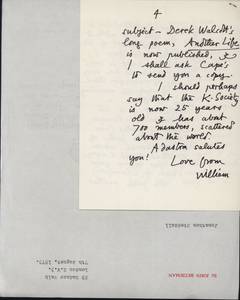 4
subject — Derek Walcott's
long poem, Another Life
is now published, &
I shall ask Cape's
to send you a copy.
I should perhaps
say that the K-Society
is now 25 years
old & has about
700 members, scattered
about the world.
A duston salutes
you!
Love from
William
Jonathan Stedall
Sir JOHN BETJEMAN
29 Radnor Walk
London S.W.3.
7th August, 1973.